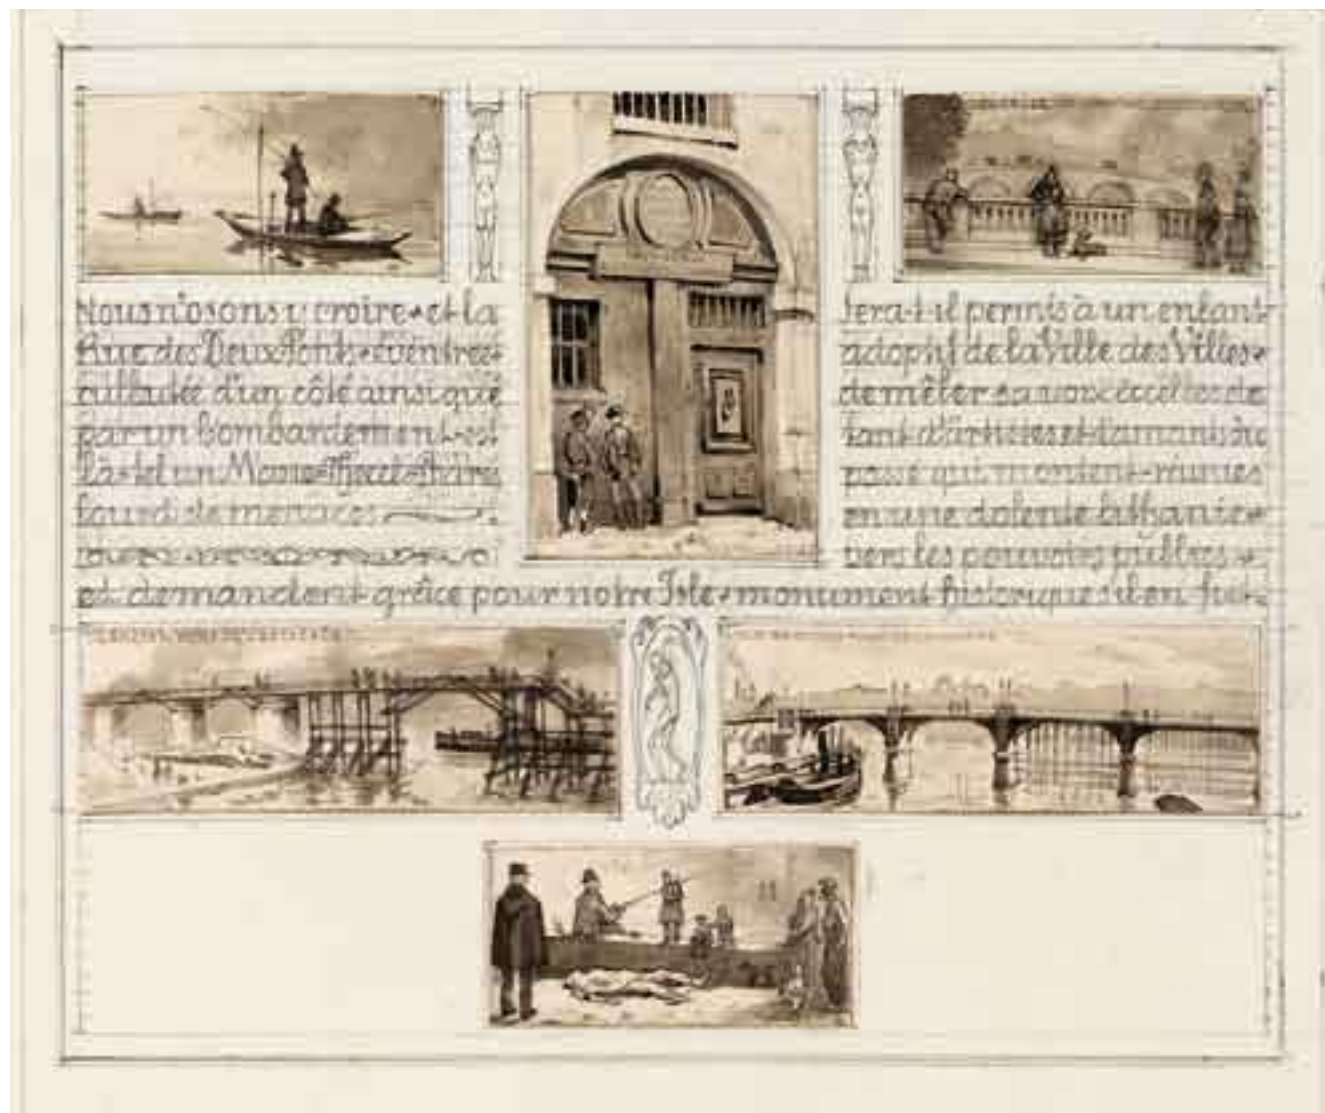 Nous n'osons y croire et la
Rue des Deux Ponts éventrée
culbutée d'un côté ainsi que
par un bombardement est
là tel un
lourd de menaces
Sera-t-il permis à un enfant
adoptif de la Ville des Villes
de mêler sa voix à celles de
tant d'artistes et d'amants du
passé qui montent réunies
en une dolente lithanie
vers les pouvoirs publics
et demandent grâce pour notre Isle monument historique s'il en fut